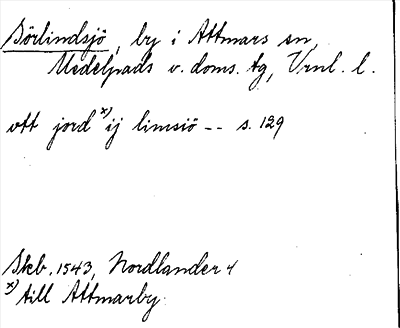 Sörlindsjö, by i Attmars sn,
Medelpads v. doms. tg, Vrnl. l.
ott jord x) ij limsiö -- s. 129
Skb. 1543, Nordlander 4
x) till Attmarby